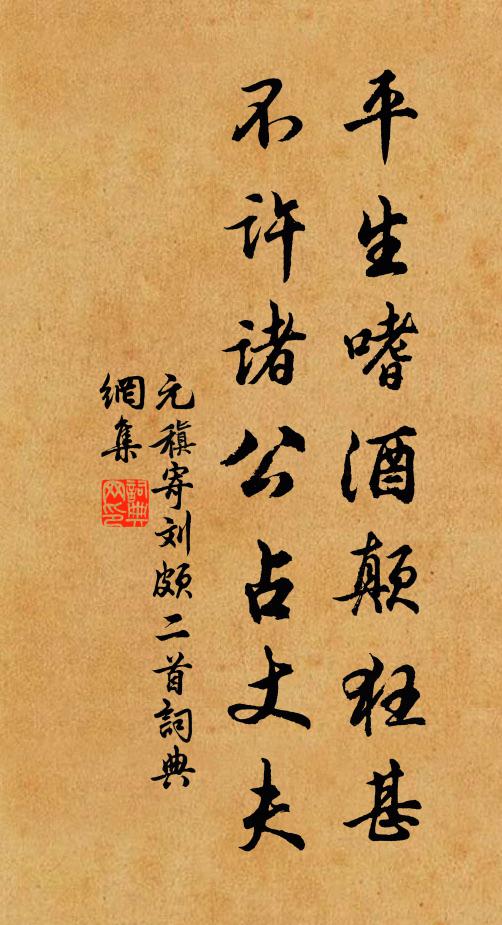 平生嗜酒颠狂甚
不许诸公占丈夫
元稹寄刘颇二首詞典
網集
詞典
网印